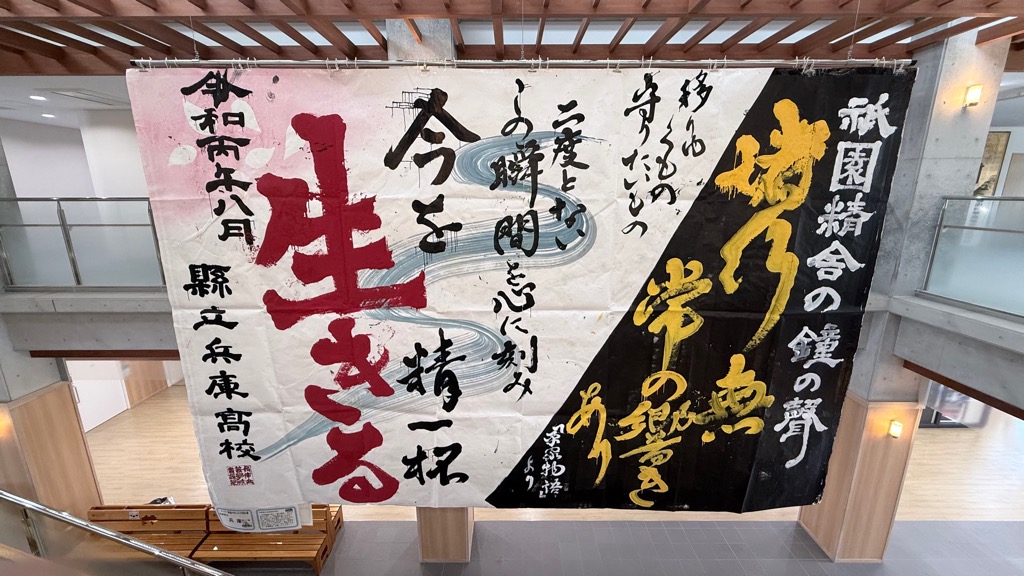 祇園精舎の鐘の聲
諸行無
常の響き
あり
『平家物語』
より
移りゆくもの
守りたいもの
二度とない
この瞬間を心に刻み
今を精一杯
生きる
令和丙午八月 縣立兵庫髙校